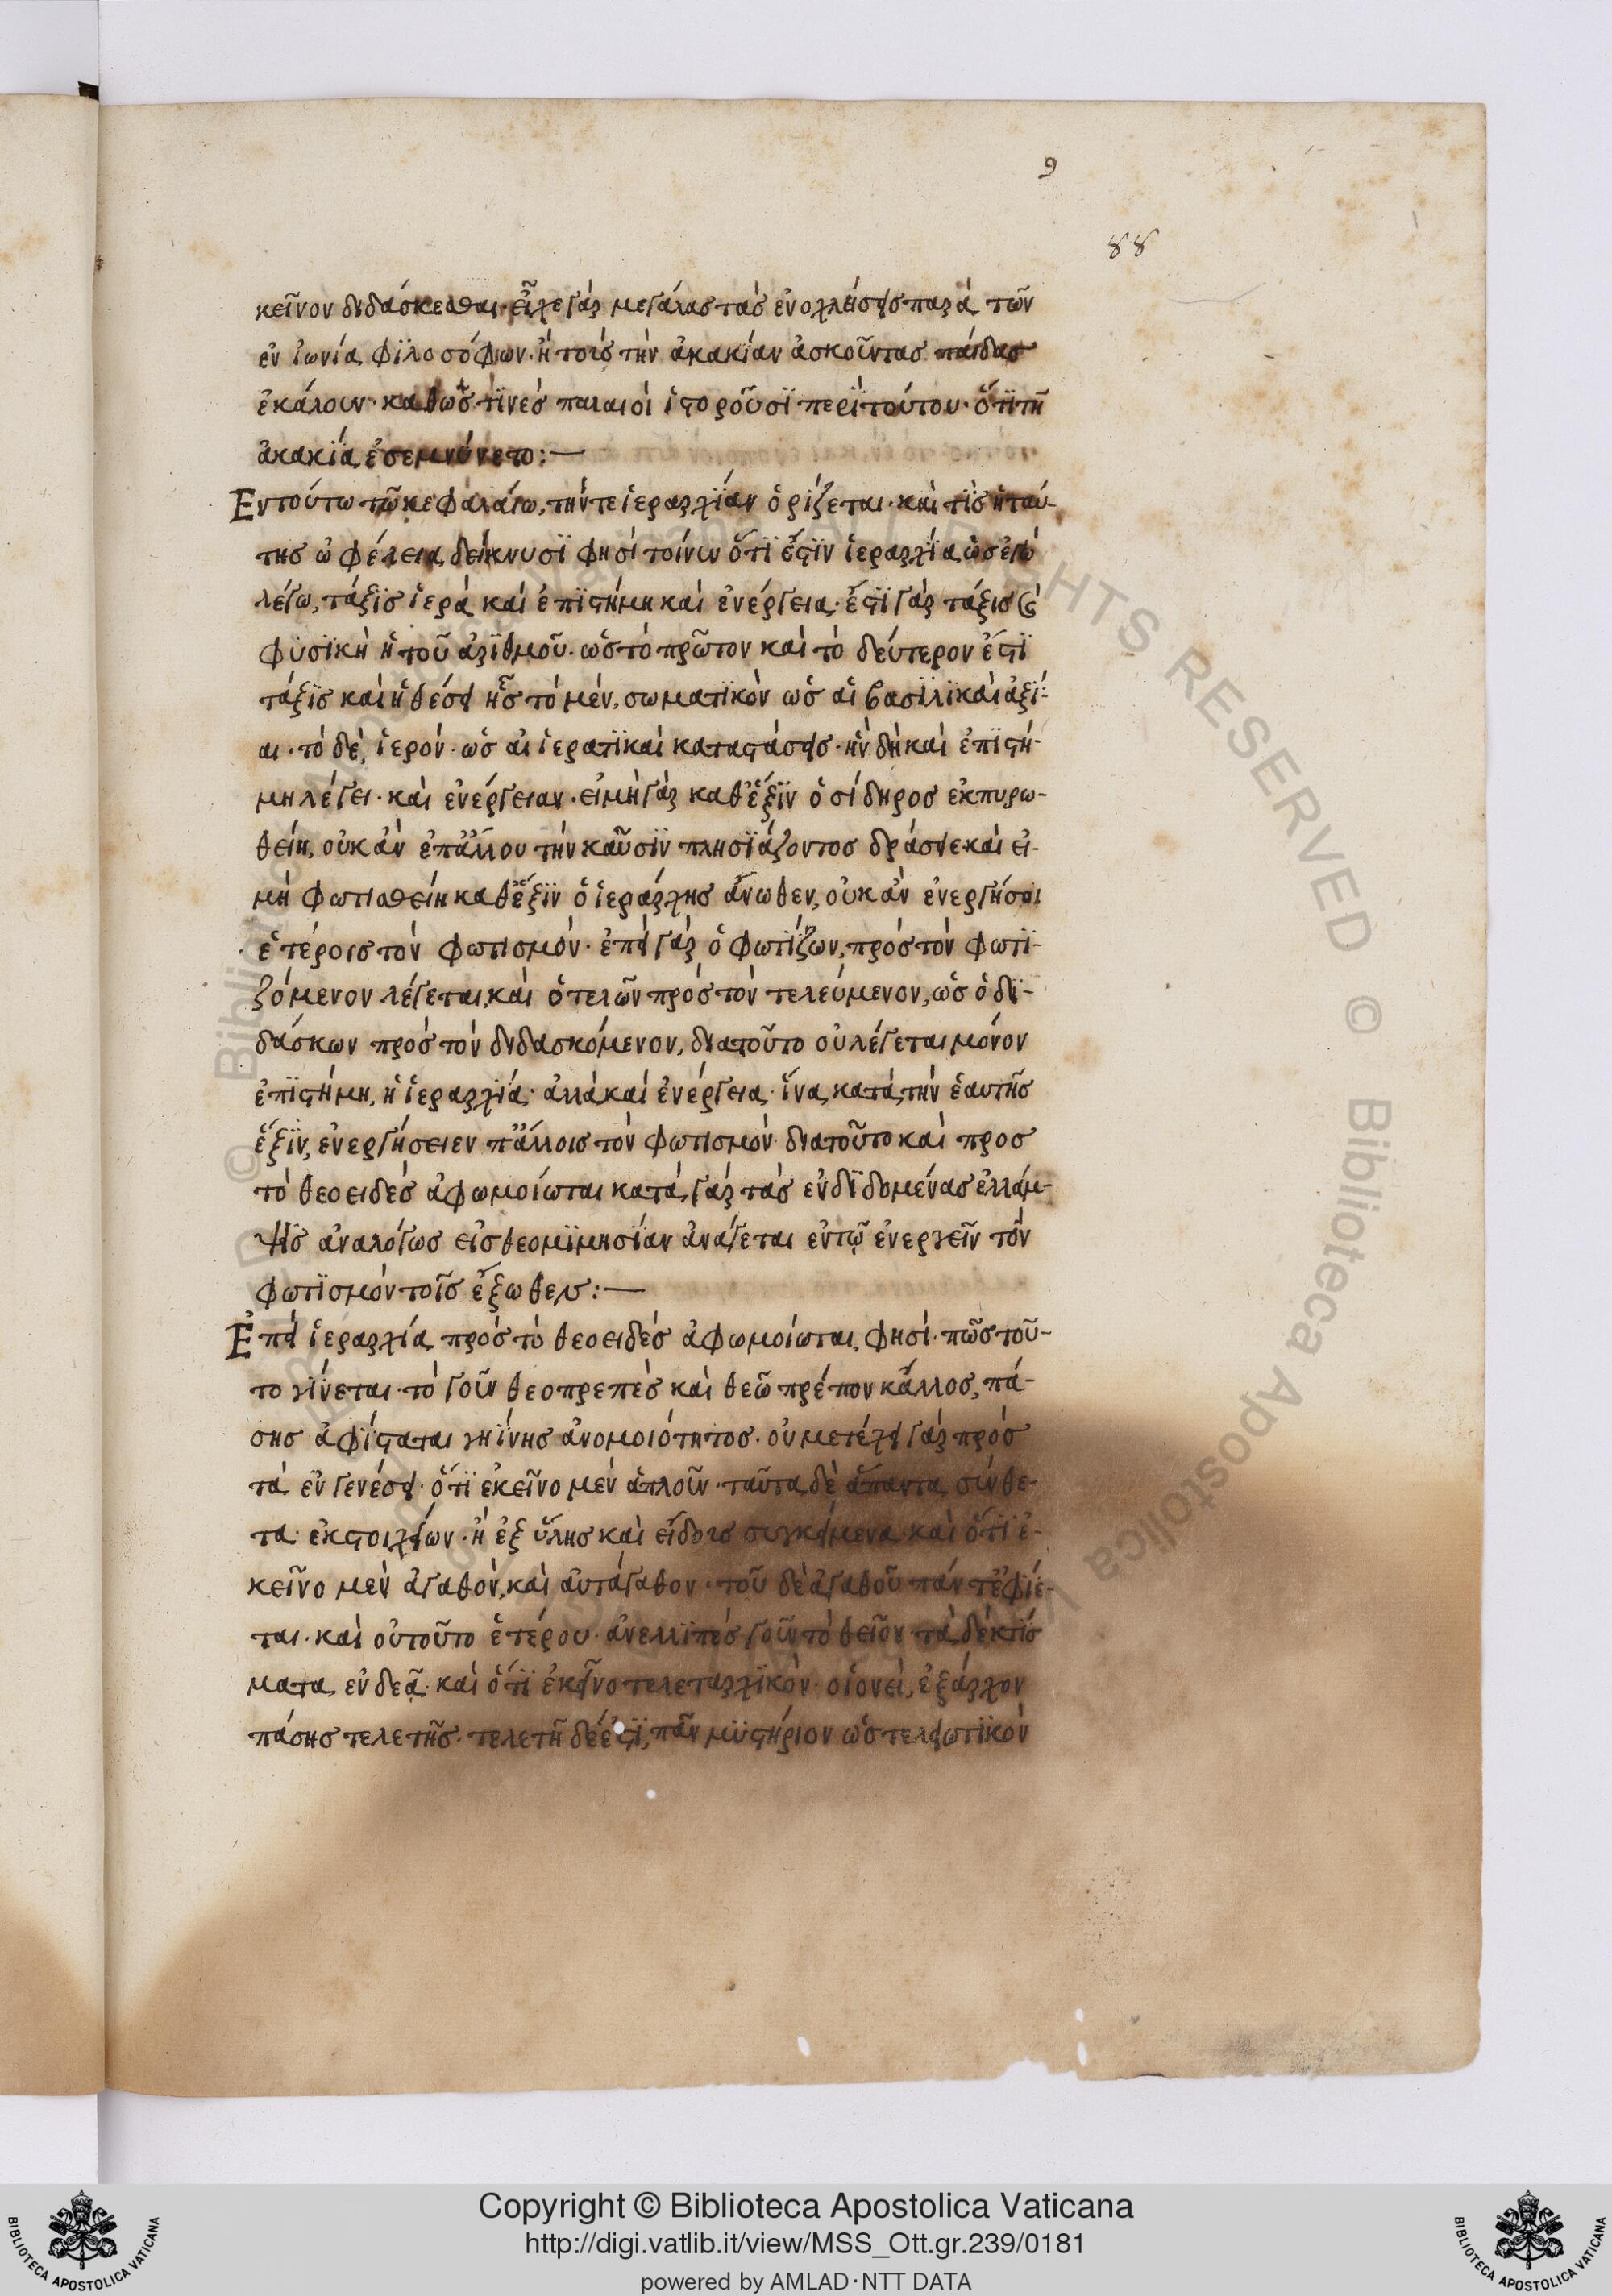 9
88
κεῖνον διδάσκεσθαι· εἶχε γὰρ μεγάλας τὰς ἐνοχλήσεις παρὰ τῶν
ἐν ἰωνία φϊλοσόφων· ἢ τοὺς τὴν ἀκακίαν ἀσκοῦντας παίδας
ἐκάλουν· καθὼς τϊνὲς παλαιοὶ ἱστοροῦσϊ περὶ τούτου· ὅτϊ τῆ
ἀκακΐα ἐσεμνύνετο:—
Εν τούτω τῶ κεφαλαίω, τήν τε ἱεραρχΐαν ὁρίζεται· καὶ τΐς ἡ ταύ-
της ὠφέλεια δείκνυσϊ φησὶ τοίνυν ὅτϊ ἔστϊν ἱεραρχΐα ὡς ἐγὼ
λέγω, τάξϊς ἱερὰ καὶ ἐπϊστήμη καὶ ἐνέργεια· ἔστϊ γὰρ τάξις καὶ
φϋσϊκὴ ἡ τοῦ ἀρϊθμοῦ· ὡς τὸ πρῶτον καὶ τὸ δεύτερον ἔστϊ
τάξϊς καὶ ἡ θέσει ἧς τὸ μὲν, σωματϊκὸν ὡς αἱ βασϊλϊκαὶ ἀξΐ-
αι· τὸ δὲ, ἱερόν· ὡς αἱ ἱερατϊκαὶ καταστάσεις· ἣν δὴ καὶ ἐπϊστή-
μη λέγει· καὶ ἐνέργειαν· εἰ μὴ γὰρ καθ' ἕξϊν ὁ σίδηρος ἐκπυρω-
θείη, οὐκ ἂν ἐπ' ἄλλου τὴν καῦσϊν πλησϊάζοντος δράσειε καὶ εἰ-
μὴ φωτισθείη καθ' ἕξϊν ὁ ἱεράρχης ἄνωθεν, οὐκ ἂν ἐνεργήσαι
ἑτέροις τὸν φωτισμόν· ἐπεὶ γὰρ ὁ φωτΐζων, πρὸς τὸν φωτϊ-
ζόμενον λέγεται, καὶ ὁ τελῶν πρὸς τὸν τελούμενον, ὡς ὁ δϊ-
δάσκων πρὸς τὸν διδασκόμενον, διατοῦτο οὐ λέγεται μόνον
ἐπϊστήμη, ἡ ἱεραρχΐα· ἀλλὰ καὶ ἐνέργεια· ἵνα κατὰ τὴν ἑαυτῆς
ἕξϊν, ἐνεργήσειεν π' ἄλλοις τὸν φωτισμόν· διατοῦτο καὶ προς
τὸ θεοειδὲς ἀφωμοίωται κατὰ γὰρ τὰς ἐνδϊδομένας ἐλλάμ-
ψεις ἀναλόγως εἰς θεομϊμησΐαν ἀνάγεται ἐν τῷ ἐνεργεῖν τὸν
φωτϊσμὸν τοῖς ἔξωθεν:—
Ἐπεὶ ἱεραρχία πρὸς τὸ θεοειδὲς ἀφωμοίωται, φησί· πῶς τοῦ-
το γΐνεται· τὸ γοῦν θεοπρεπὲς καὶ θεῶ πρέπον κάλλος, πά-
σης ἀφΐσταται γηΐνης ἀνομοιότητος· οὐ μετέχει γὰρ πρὸς
τὰ ἐν γενέσει· ὅτϊ ἐκεῖνο μὲν ἁπλοῦν· ταῦτα δὲ ἅπαντα σύνθε-
τα· ἐκ στοιχείων· ἢ ἐξ ὕλης καὶ εἴδους συγκείμενα· καὶ ὅτϊ ἐ-
κεῖνο μὲν ἀγαθὸν, καὶ αὐτάγαθον· τοῦ δὲ ἀγαθοῦ πάντ' ἐφΐε-
ται· καὶ οὐ τοῦτο ἑτέρου· ἀνελλϊπὲς γοῦν τὸ θεῖον· τὰ δὲ κτΐσ
ματα, ἐνδεᾶ· καὶ ὅτϊ ἐκεῖνο τελεταρχϊκὸν· οἱονεὶ, ἐξάρχον
πάσης τελετῆς· τελετὴ δέ ἐστϊ, πᾶν μϋστήριον ὡς τελειωτϊκὸν
Copyright © Biblioteca Apostolica Vaticana
http://digi.vatlib.it/view/MSS_Ott.gr.239/0181
powered by AMLAD·NTT DATA